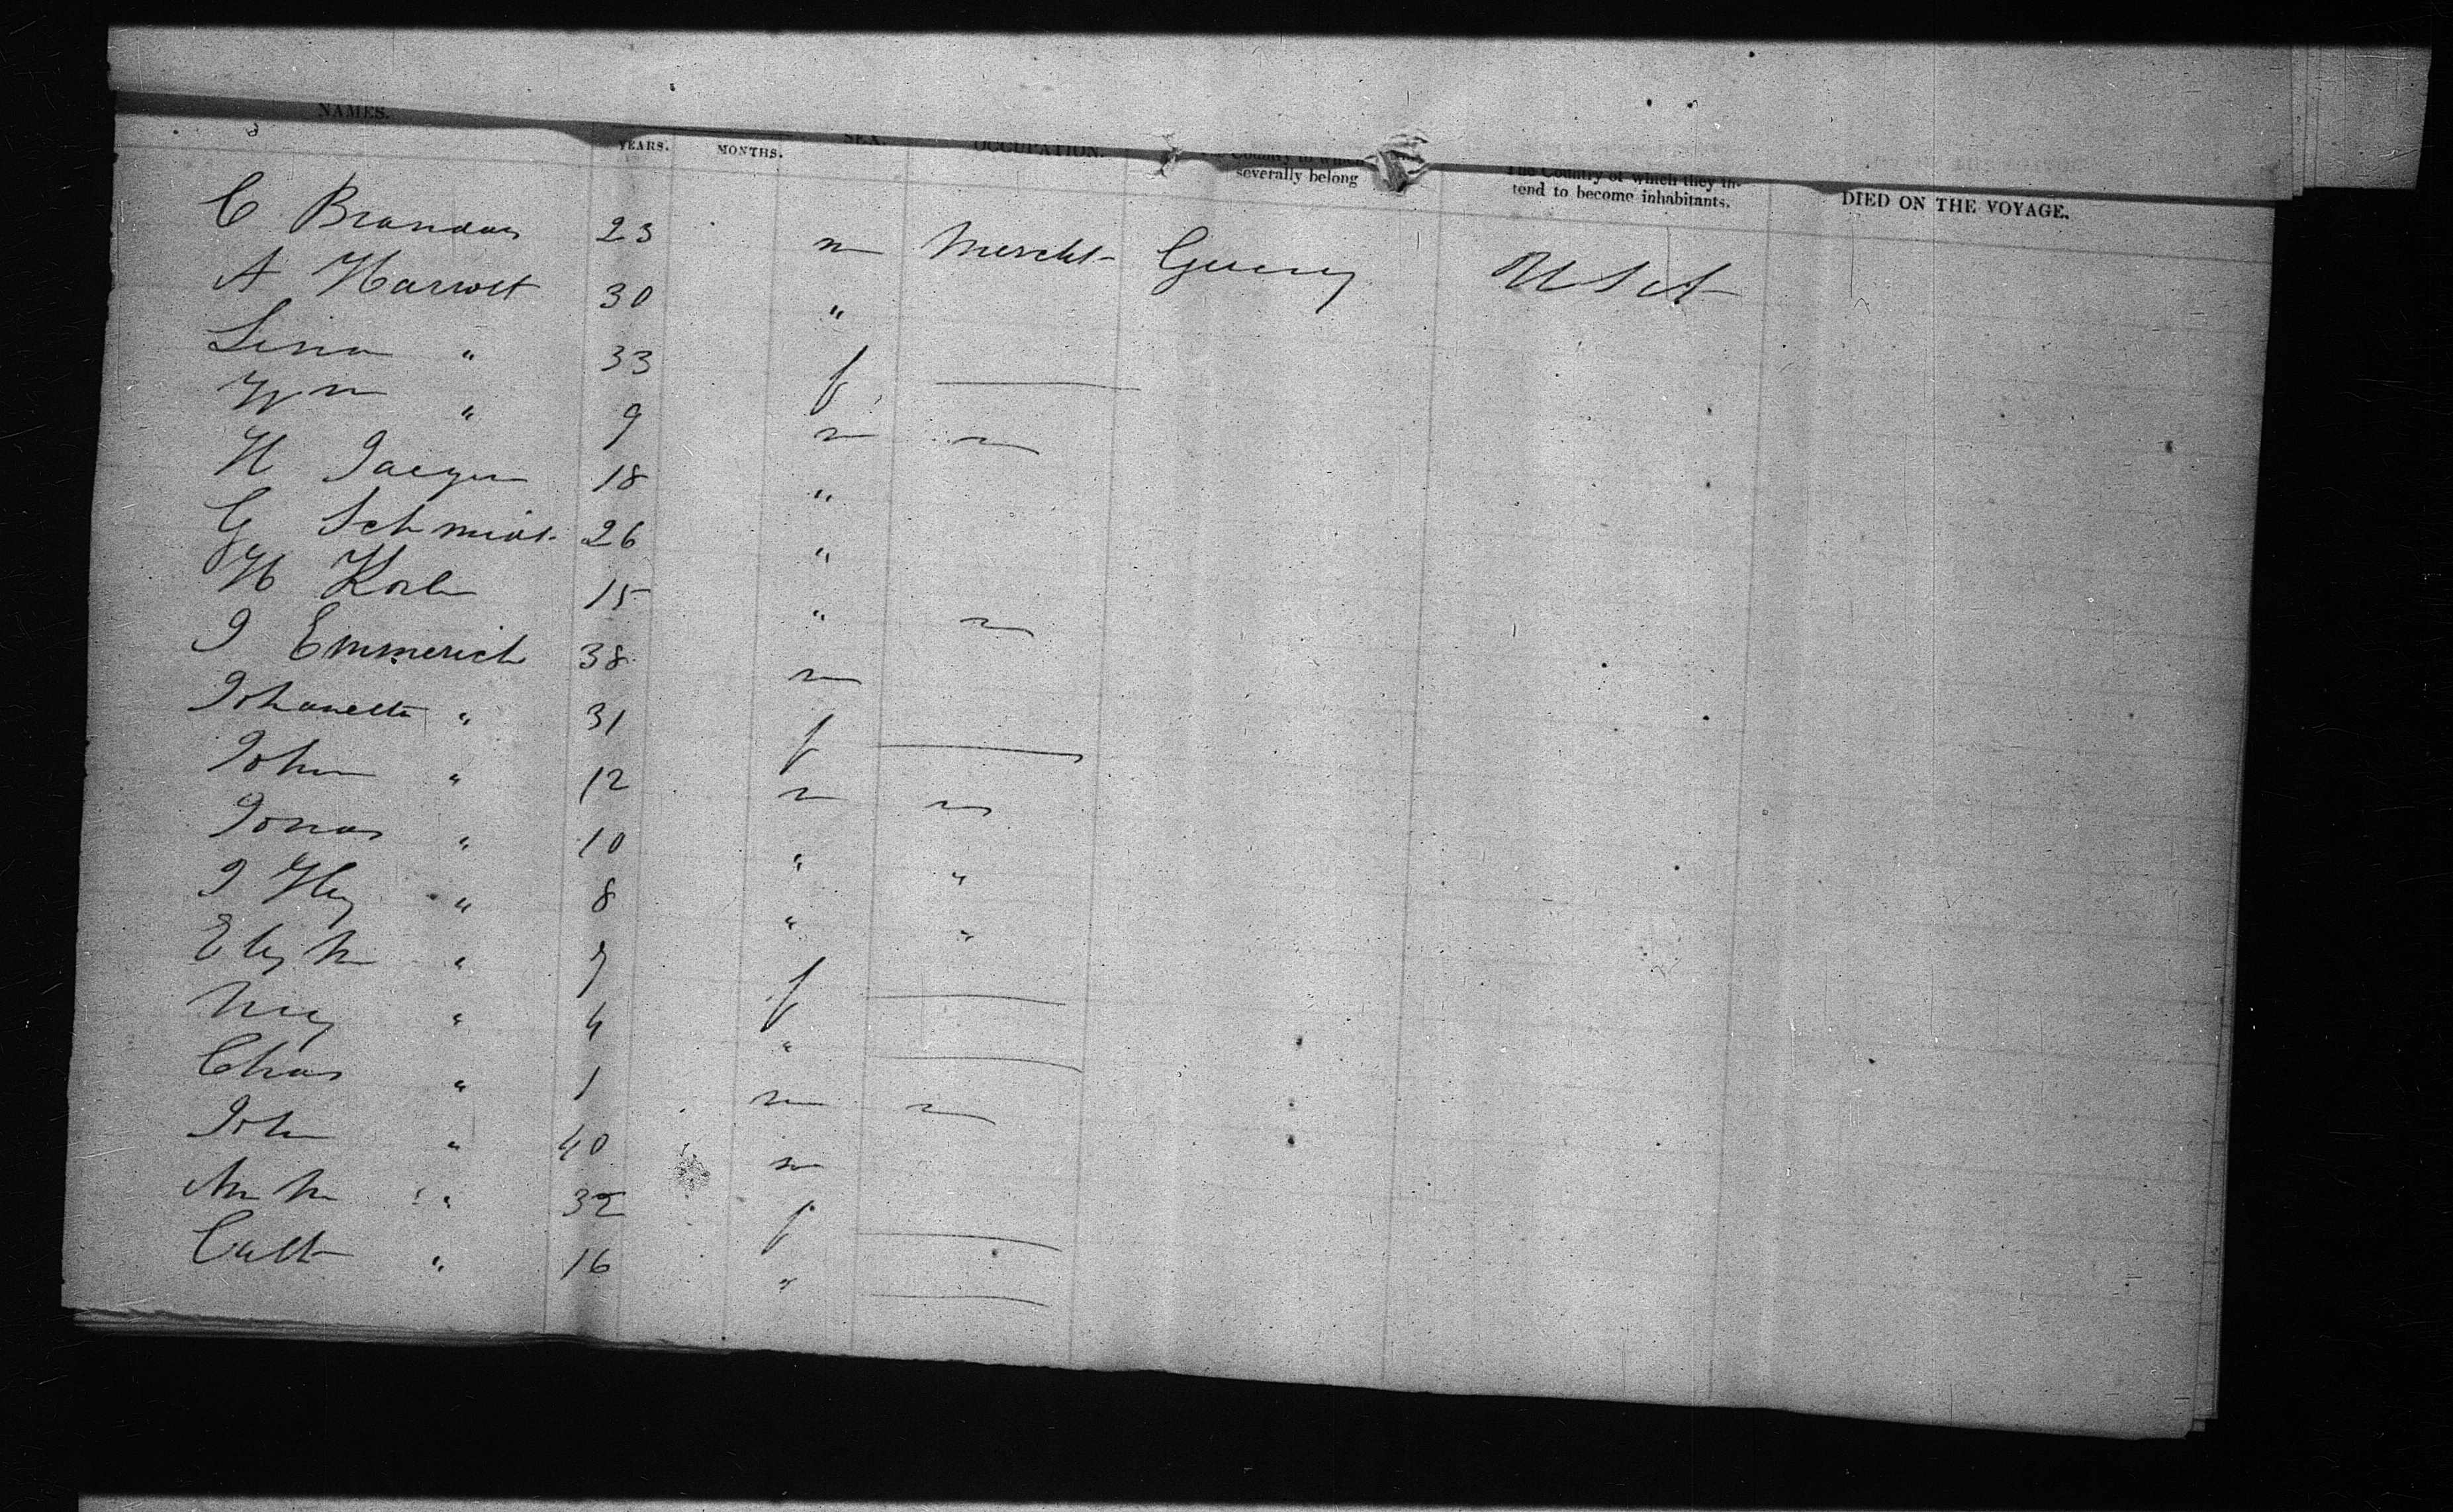 NAMES. YEARS. MONTHS. SEX. OCCUPATION. Country to which severally belong The Country of which they in-tend to become inhabitants. DIED ON THE VOYAGE.
C Brandau 23 m Mercht Germy U S A
A 30 "
Lina " 33 f
Wm " 9 m
H Jaeger 18 "
G Schmidt 26 "
H 15 "
J Emmerich 38 m
Johanetta " 31 f
John " 12 m
Jonas " 10 " "
J Hy " 8 " "
" 7 f
" 4 "
Chas " 1 m
John " 40 m
" 32 f
Cath " 16 "